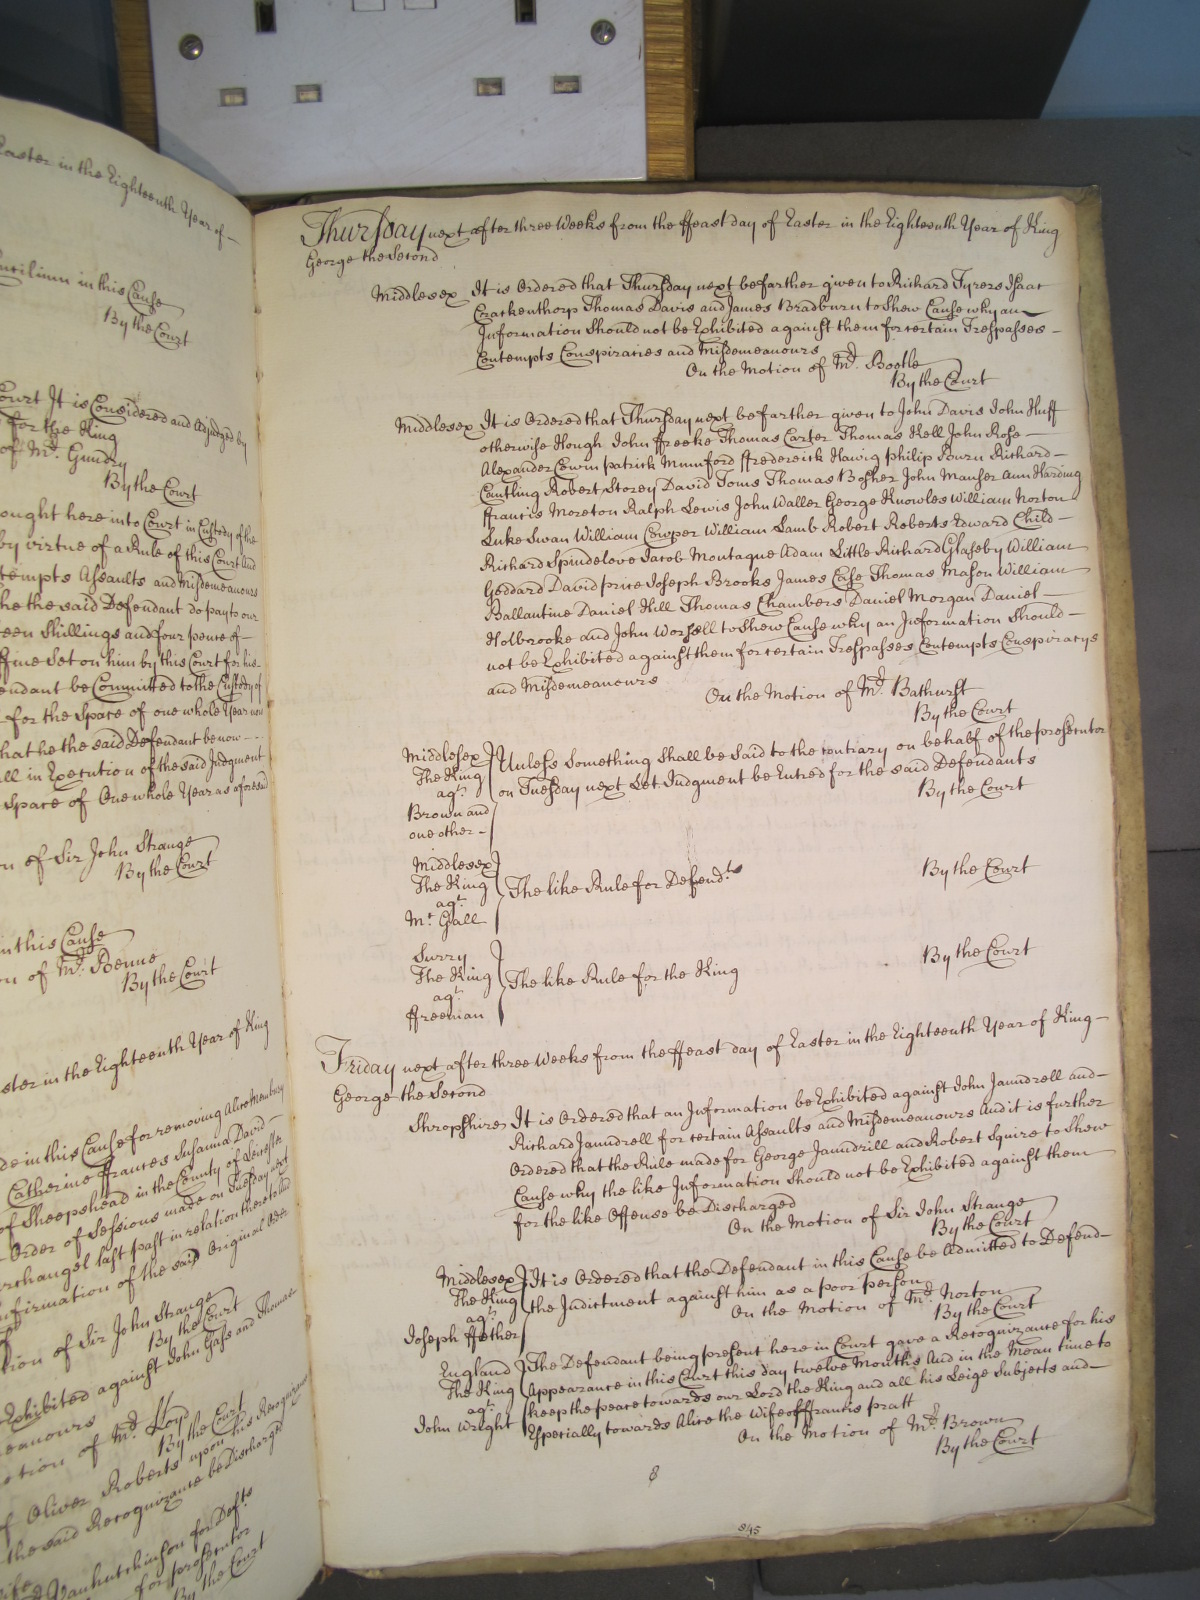 Easter in the Eighteenth Year of
Concilium in this Cause
By the Court
Court It is Considered and Adjudged by
for the King
of Mr. Gundry
By the Court
brought here into Court in Custody of the
by virtue of a Rule of this Court And
Contempts Assaults and Misdemeanours
he the said Defendant do pay to our
Shillings and four pence of
ffine Set on him by this Court for his
Defendant be Committed to the Custody of
for the Space of one whole Year now
that he the said Defendant be now
in Execution of the said Judgment
Space of One whole Year as aforesaid
of Sir John Strange
By the Court
in this Cause
of Mr. Benne
By the Court
Easter in the Eighteenth Year of King
made in this Cause for removing Alice Membury
Catherine ffrances Susanna David
of Sheepshead in the County of Leicester
Order of Sessions made on Tuesday next
last past in relation thereto and
Confirmation of the said Original Order
Motion of Sir John Strange
By the Court
Exhibited against John Gass and Thomas
Misdemeanours
Motion of Mr. Lloyd
By the Court
of Oliver Roberts upon his Recognizance
the said Recognizance be Discharged
Vanhutchinson for Defts
for prosecutor
By the Court
Thursday next after three Weeks from the ffeast day of Easter in the Eighteenth Year of King
George the Second
Middlesex It is Ordered that Thursday next be farther given to Richard Tyrers Isaac
Crackenthorp Thomas Davis and James Bradburn to Shew Cause why an
Information Should not be Exhibited against them for certain Trespasses
Contempts Conspiracies and Misdemeanours
On the Motion of Mr. Bootle
By the Court
Middlesex It is Ordered that Thursday next be farther given to John Davis John Huff
otherwise Hough John ffreeke Thomas Carter Thomas Kell John Rose
Alexander Cowin Patrick Mumford ffredereick Hawig philip Bourn Richard
Cantling Robert Storey David Toms Thomas Bosher John Manser Ann Harding
ffrancis Moreton Ralph Lewis John Waller George Knowles William Norton
Luke Swan William Cowper William Lamb Robert Roberts Edward Child
Richard Spindelove Jacob Montague Adam Little Richard Glaseby William
Goddard David price Joseph Brooks James Case Thomas Mason William
Ballantine Daniel Hill Thomas Chambers Daniel Morgan Daniel
Holbrooke and John Worsell to Shew Cause why an Information Should
not be Exhibited against them for certain Trespasses Contempts Conspiracys
and Misdemeanours
On the Motion of Mr. Bathurst
By the Court
Middlesex Unless Something Shall be Said to the contrary on behalf of the prosecutor
The King on Tuesday next Let Judgment be Entred for the said Defendants
agt. By the Court
Brown and
one other
Middlesex
The King The like Rule for Defendts By the Court
agt.
Mt Gall
Surry
The King The like Rule for the King By the Court
agt.
ffreeman
Friday next after three Weeks from the ffeast day of Easter in the Eighteenth Year of King
George the Second
Shropshire It is Ordered that an Information be Exhibited against John Jaundrell and
Richard Jaundrell for certain Assaults and Misdemeanours And it is further
Ordered that the Rule made for George Jaundrill and Robert Squire to Shew
Cause why the like Information Should not be Exhibited against them
for the like Offense be Discharged
On the Motion of Sir John Strange
By the Court
Middlesex It is Ordered that the Defendant in this Cause be Admitted to Defend
The King the Indictment against him as a poor person
agt. On the Motion of Mr. Norton
Joseph ffother By the Court
England The Defendant being present here in Court gave a Recognizance for his
The King Appearance in this Court this day twelve Months And in the Mean time to
agt. keep the peace towards our Lord the King and all his Leige Subjects and
John Wright Especially towards Alice the Wife of ffrancis pratt
On the Motion of Mr. Brown
By the Court
8